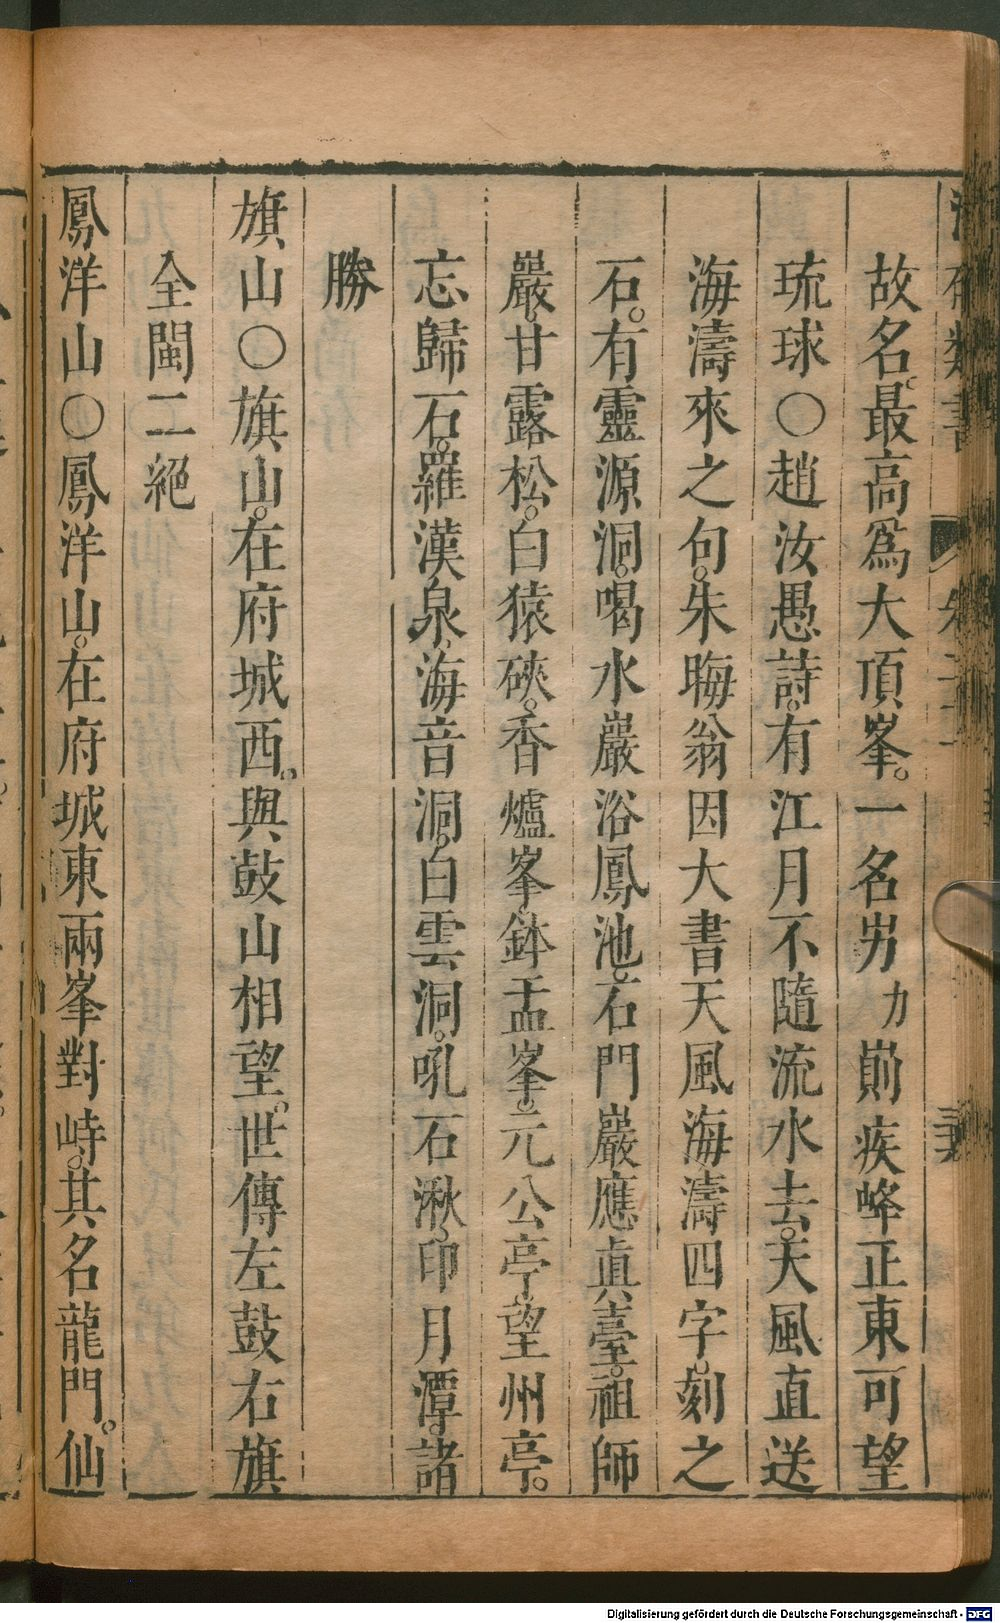 故名最高爲大頂峯一名屴力崱疾峰正東可望
琉球○趙汝愚詩有江月不隨流水去天風直送
海濤來之句朱晦翁因大書天風海濤四字刻之
石有靈源洞喝水巖浴鳳池石門巖應眞臺祖師
巖甘露松白猿硤香爐峯鉢盂峯元公亭望州亭
忘歸石羅漢泉海音洞白雲洞吼石湫印月潭諸
勝
旗山○旗山在府城西與鼓山相望世傳左鼓右旗
全閩二絕
鳳洋山○鳳洋山在府城東兩峯對峙其名龍門仙
Digitalisierung gefördert durch die Deutsche Forschungsgemeinschaft - DFG